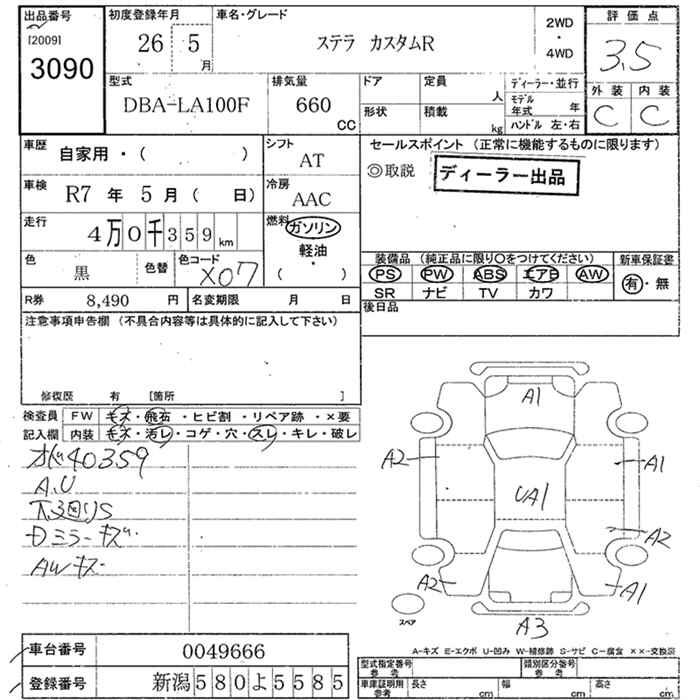 出品番号 初度登録年月 車名・グレード 2WD・4WD 評価点
[2009] 26 5月 ステラ カスタムR 3.5
3090
型式 排気量 ドア 定員 人 ディーラー・並行 外装 内装
DBA-LA100F 660 CC 形状 積載 kg モデル年式 年 C C
ハンドル 左・右
車歴 自家用・( ) シフト AT セールスポイント (正常に機能するものに限ります)
◎取説 ディーラー出品
車検 R7年 5月 ( 日) 冷房 AAC
走行 4万0千359km 燃料 ガソリン
軽油・
( )
色 黒 色替 色コード X07 装備品 (純正品に限り○をつけてください) 新車保証書
PS PW ABS エアB AW 有・無
SR ナビ TV カワ
R券 8,490 円 名変期限 月 日 後日品
注意事項申告欄 (不具合内容等は具体的に記入して下さい)
修復歴 有 [箇所 ]
検査員 FW キズ・飛石・ヒビ割・リペア跡・×要
記入欄 内装 キズ・汚レ・コゲ・穴・スレ・キレ・破レ
40359
A.U
Dミラーキズ
AWキズ
A1
A2 A1
UA1
A2
A2 A1
スペア
A3
A-キズ E-エクボ U-凹み W-補修跡 S-サビ C-腐食 ××-交換済
車台番号 0049666
登録番号 新潟580よ5585
型式指定番号 参考 類別区分番号 参考
車庫証明用 参考 長さ cm 幅 cm 高さ cm